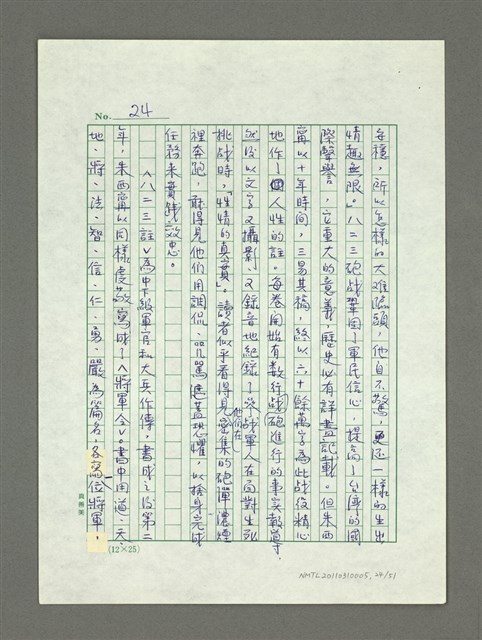 No. 24
每種,所以怎樣的大難臨頭,他自不驚,更還一樣的生出
情趣無限。」八二三砲戰鞏固了軍民信心,提高了台灣的國
際聲譽,立重大的意義,歷史必有詳盡記載。但朱西
甯以十年時間,三易其稿,終以六十餘萬字為此战役精心
地作了個人性的註。每卷開始有數行战砲進行的事实報導,
然後以文字又攝影、又錄音地紀錄了次战軍人在面對生死
挑战時,「性情的真實」。讀者似乎看得見他們在密集的砲彈濃煙
裡奔跑,聽得見他們用調侃、咒罵遮蓋恐懼,以捨身完成
任務來實踐效忠。
〈八二三註〉為中下級軍官和大兵作傳,書成之後第二
年,朱西甯以同樣虔敬寫成了〈將軍令〉。書中用道、天、
地、將、法、智、信、仁、勇、嚴為篇名,各寫一位將軍,
(12×25)
NMTL20110310005, 24/51